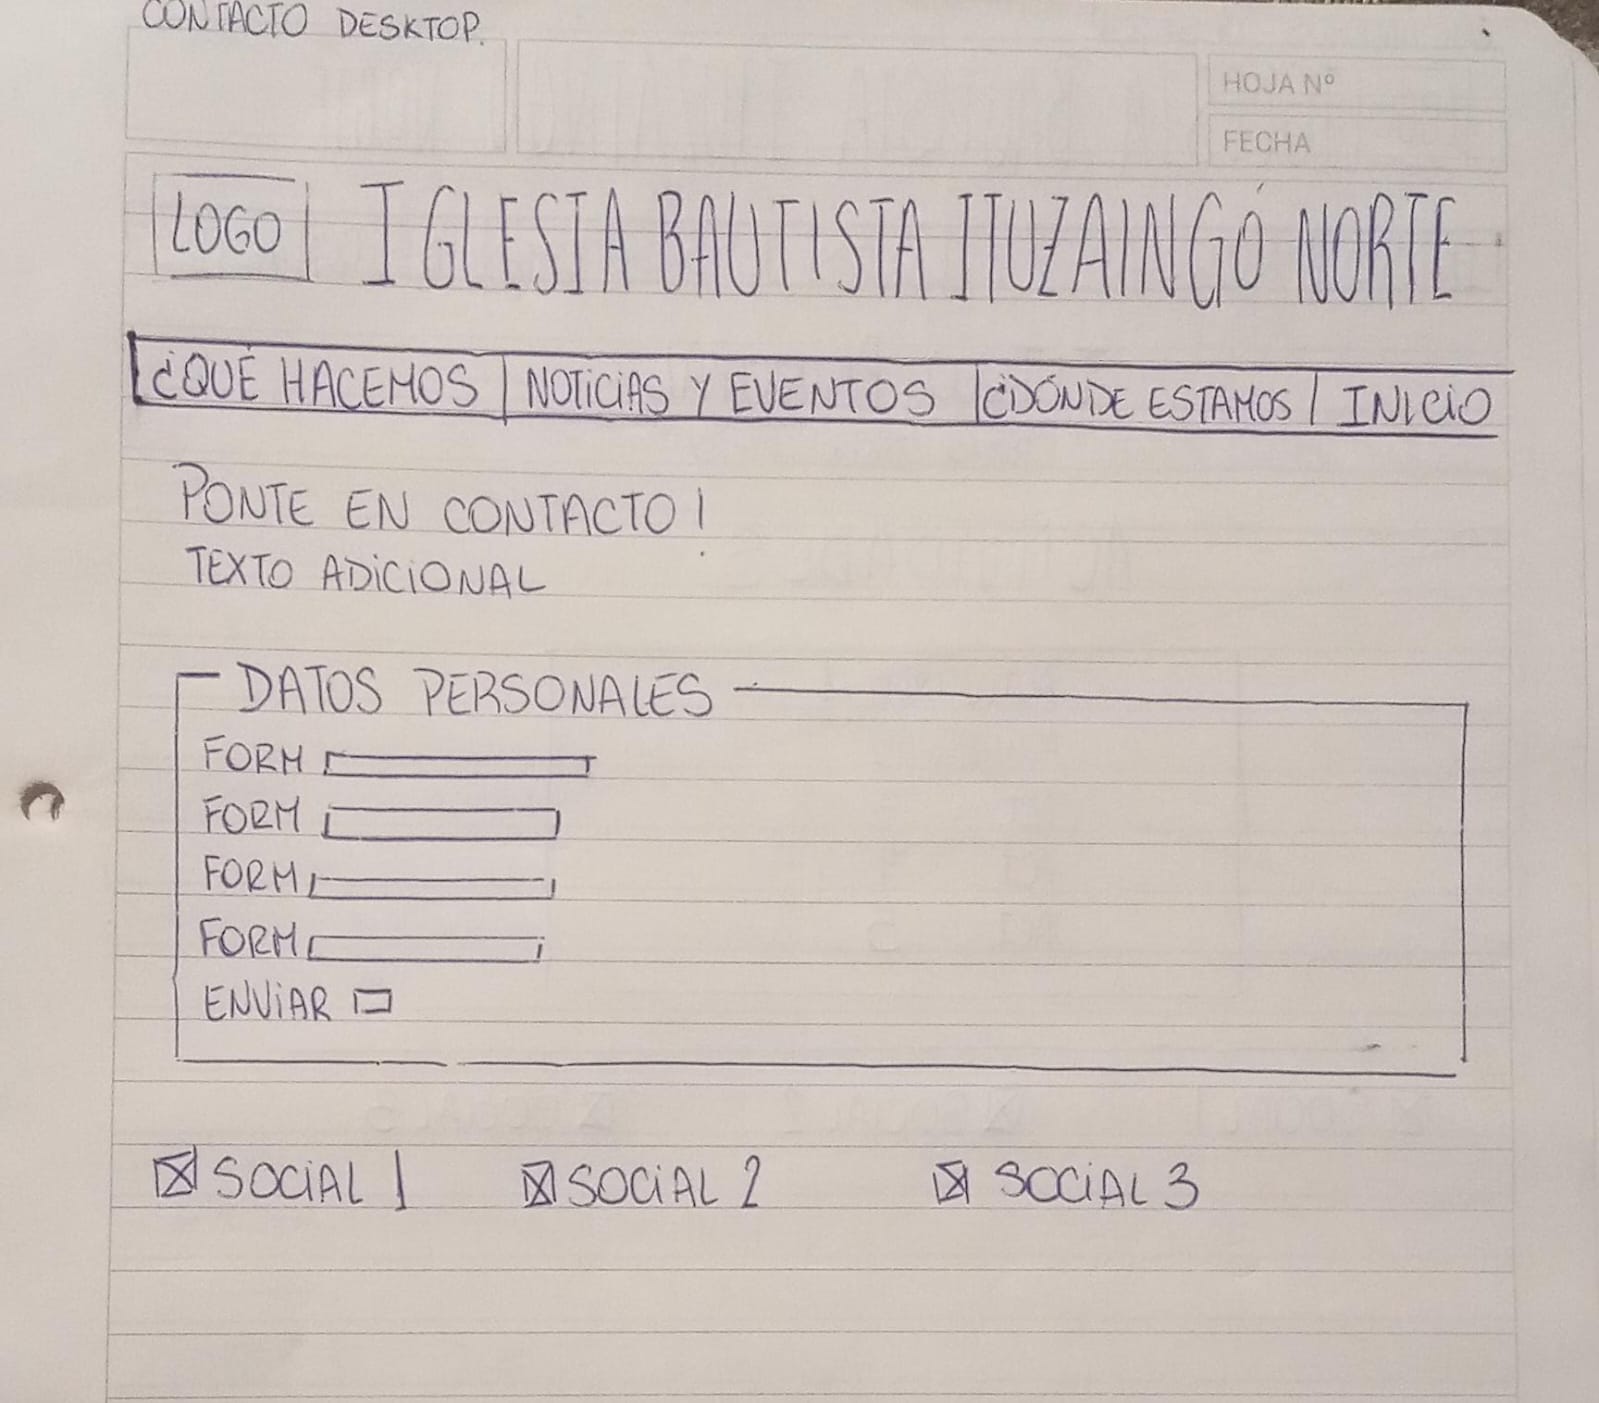 CONTACTO DESKTOP.
HOJA Nº
FECHA
LOGO IGLESIA BAUTISTA ITUZAINGÓ NORTE
¿QUÉ HACEMOS | NOTICIAS Y EVENTOS | ¿DÓNDE ESTAMOS | INICIO
PONTE EN CONTACTO!
TEXTO ADICIONAL
DATOS PERSONALES
FORM
FORM
FORM
FORM
ENVIAR
SOCIAL 1 SOCIAL 2 SOCIAL 3